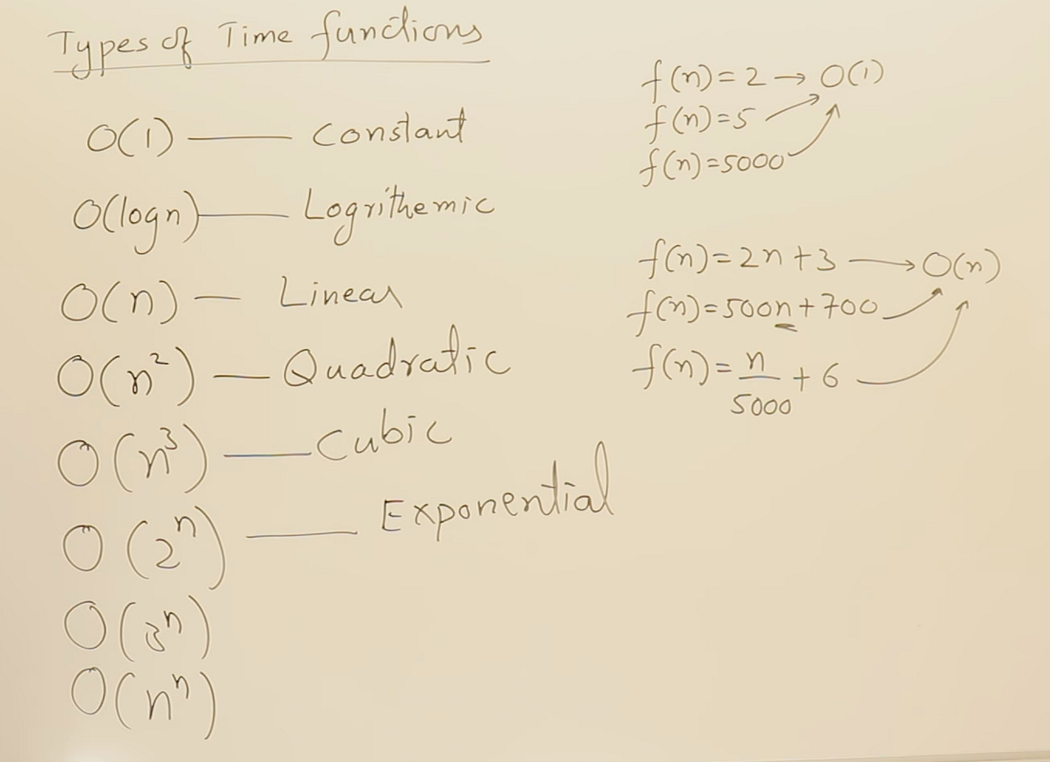 Types of Time functions
O(1) — Constant
O(logn) — Logrithemic
O(n) — Linear
O(n²) — Quadratic
O(n³) — Cubic
O(2ⁿ) — Exponential
O(3ⁿ)
O(nⁿ)
f(n)=2 → O(1)
f(n)=5
f(n)=5000
f(n)=2n+3 → O(n)
f(n)=500n+700
f(n)=n/5000 + 6